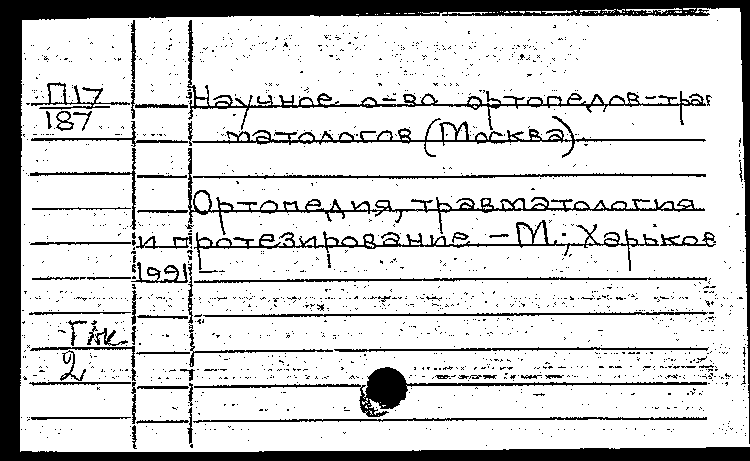 П17
187
Научное о-во ортопедов-трав
матологов (Москва).
Ортопедия, травматология
и протезирование. - М.; Харьков
1991
2